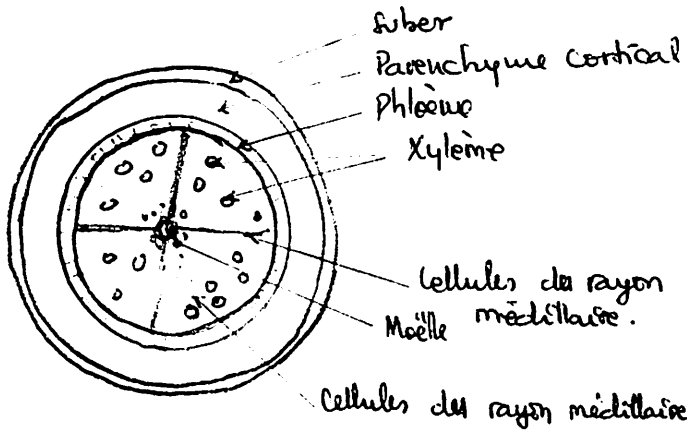 Suber
Parenchyme cortical
Phloème
Xylème
Cellules du rayon
médillaire.
Moëlle
Cellules du rayon médillaire